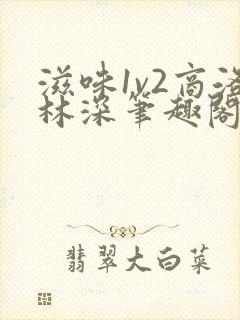 滋味1v2高洛
林深笔趣阁
翡翠大白菜